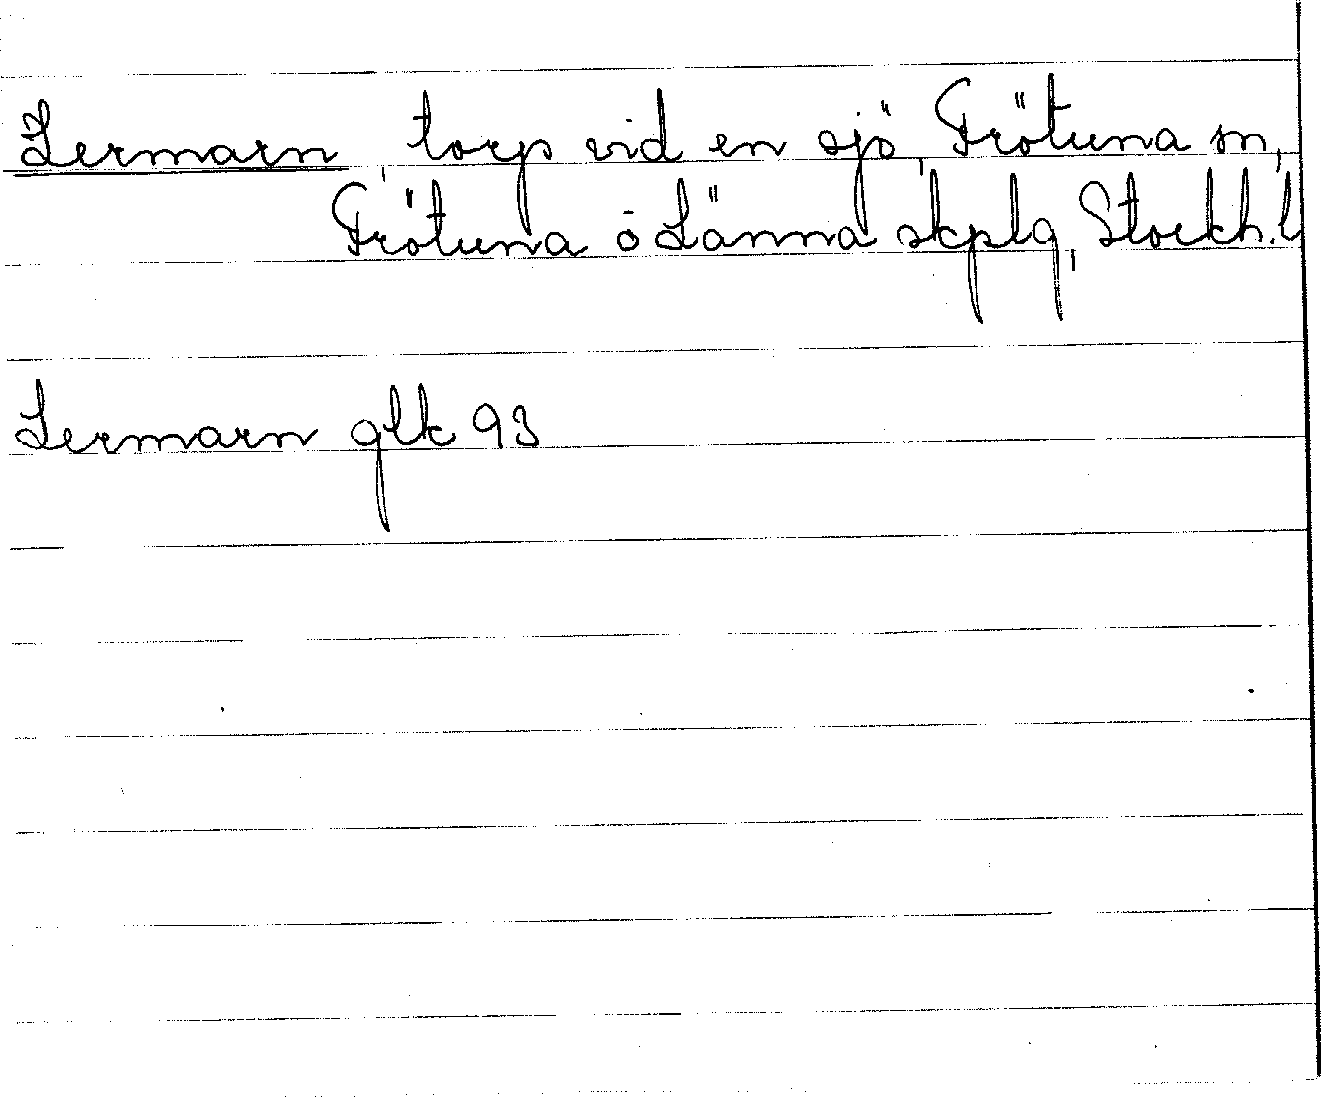 Lermarn, torp vid en sjö, Frötuna sn,
Frötuna o Länna skplg, Stockh. l
Lermarn glk 93